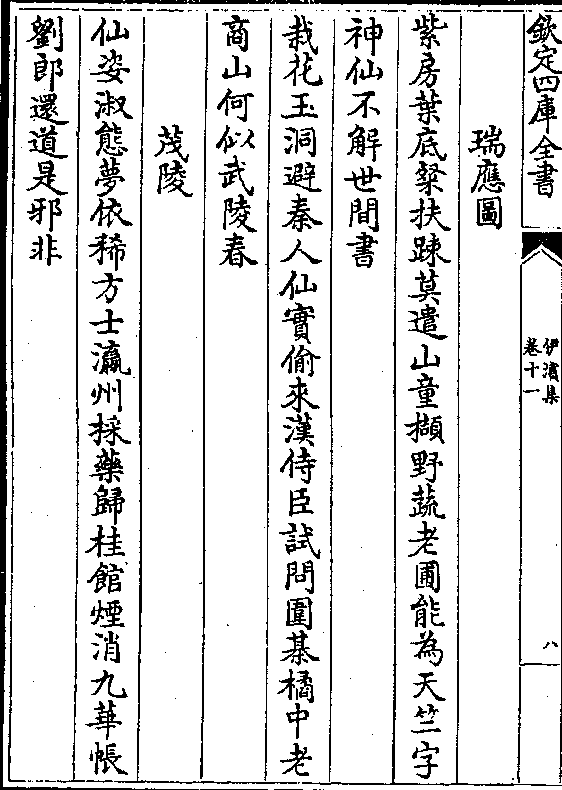 欽定四庫全書
伊濱集
卷十一
八
瑞應圖
紫房葉底糳扶踈莫遣山童擷野蔬老圃能為天竺字
神仙不解世間書
栽花玉洞避秦人仙實偷來漢侍臣試問圍棊橘中老
商山何似武陵春
茂陵
仙姿淑態夢依稀方士瀛州採藥歸桂館煙消九華帳
劉郎還道是邪非